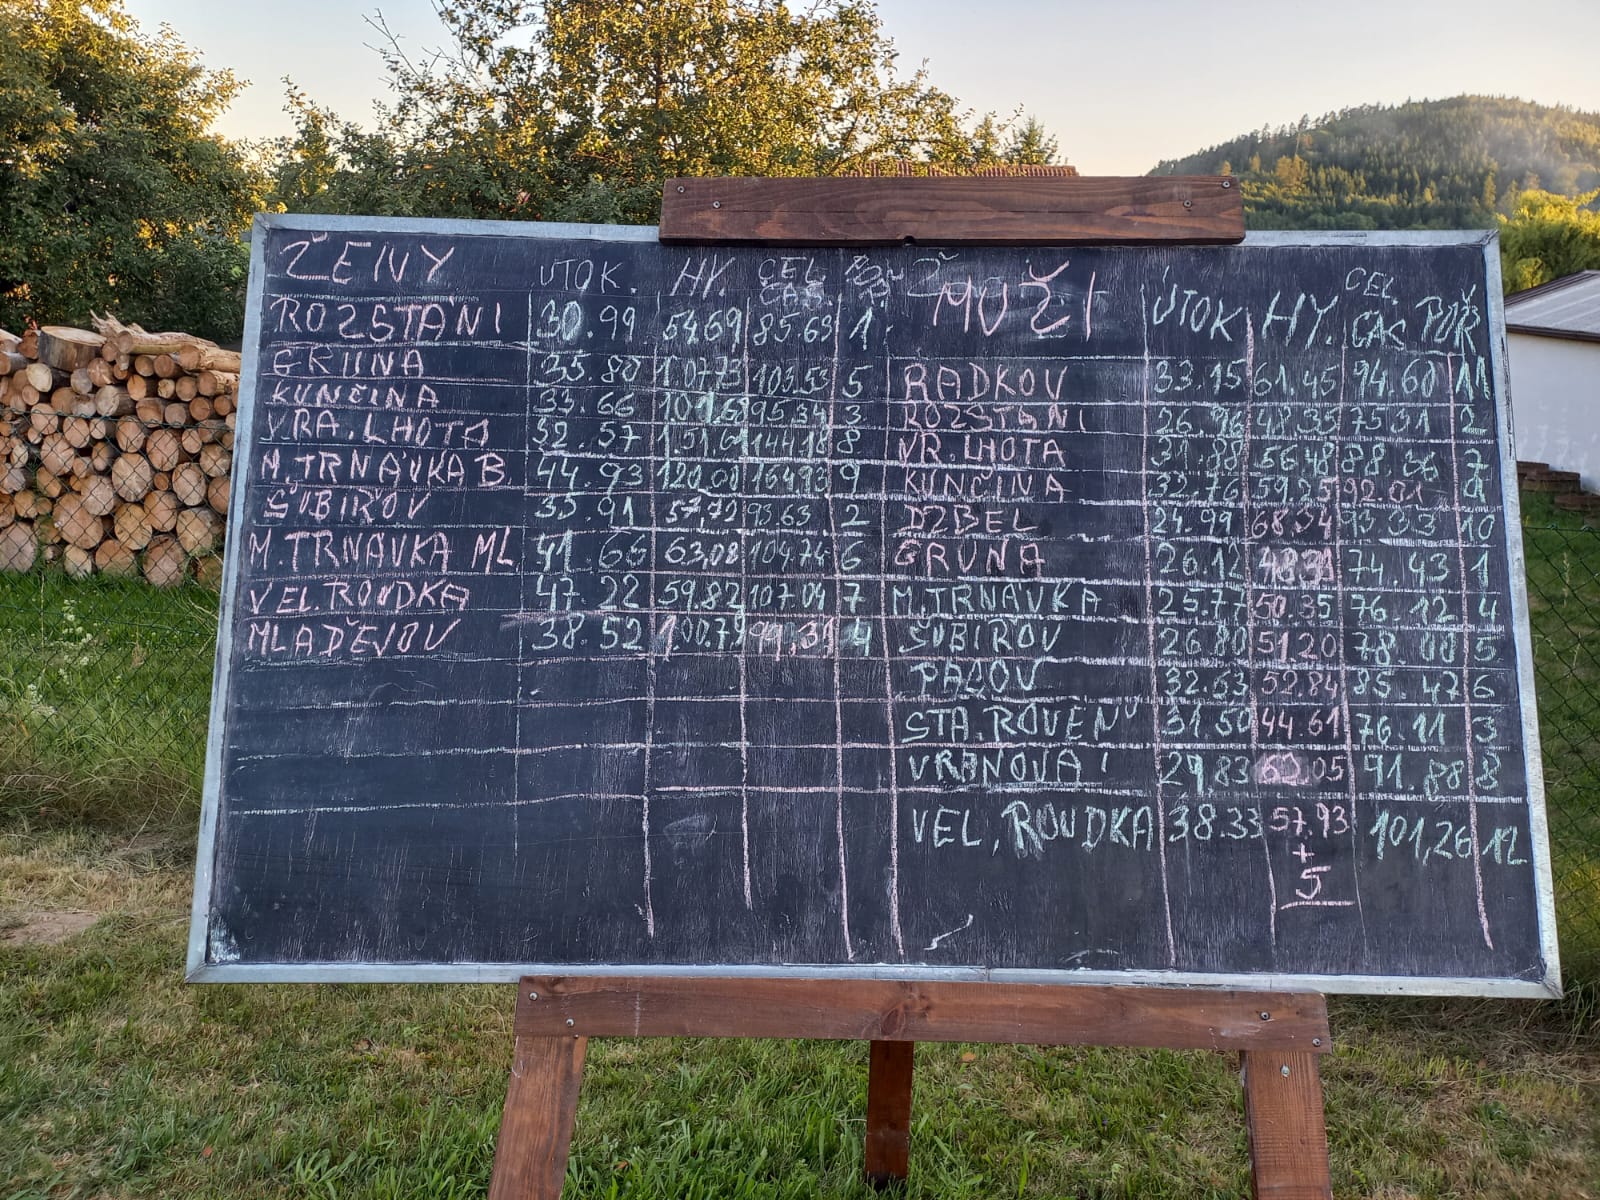 ŽENY ÚTOK. HY. CEL. ČAS POŘ
ROZSTÁNÍ 30.99 54,69 85.69 1.
GRUNA 35 80 1.07.73 103.53 5
KUNČINA 33.66 1 01,68 95.34 3
VRA. LHOTA 32.57 1.51.61 144.18 8
M. TRNÁVKA B 44.93 120,00 164.93 9
ŠUBIŘOV 35.91 57,72 93.63 2
M. TRNÁVKA ML 41 66 63,08 104.74 6
VEL. ROUDKA 47.22 59.82 107.04 7
MLADĚJOV 38.52 1.00.79 99.31 4
MUŽI ÚTOK HY. CEL. ČAS POŘ
RADKOV 33.15 61.45 94.60 11
ROZSTÁNÍ 26.96 48.35 75.31 2
VR. LHOTA 31.88 56.48 88.36 7
KUNČINA 32.76 59.25 92.01 9
DZBEL 24.99 68.34 93.33 10
GRUNA 26.12 48.31 74.43 1
M. TRNÁVKA 25.77 50.35 76.12 4
ŠUBIŘOV 26.80 51.20 78.00 5
PACOV 32.63 52.84 85.47 6
STA. ROVEŇ 31.50 44.61 76.11 3
VRANOVÁ 29,83 62.05 91.88 8
VEL. ROUDKA 38.33 57.93 101,26 12
+
5